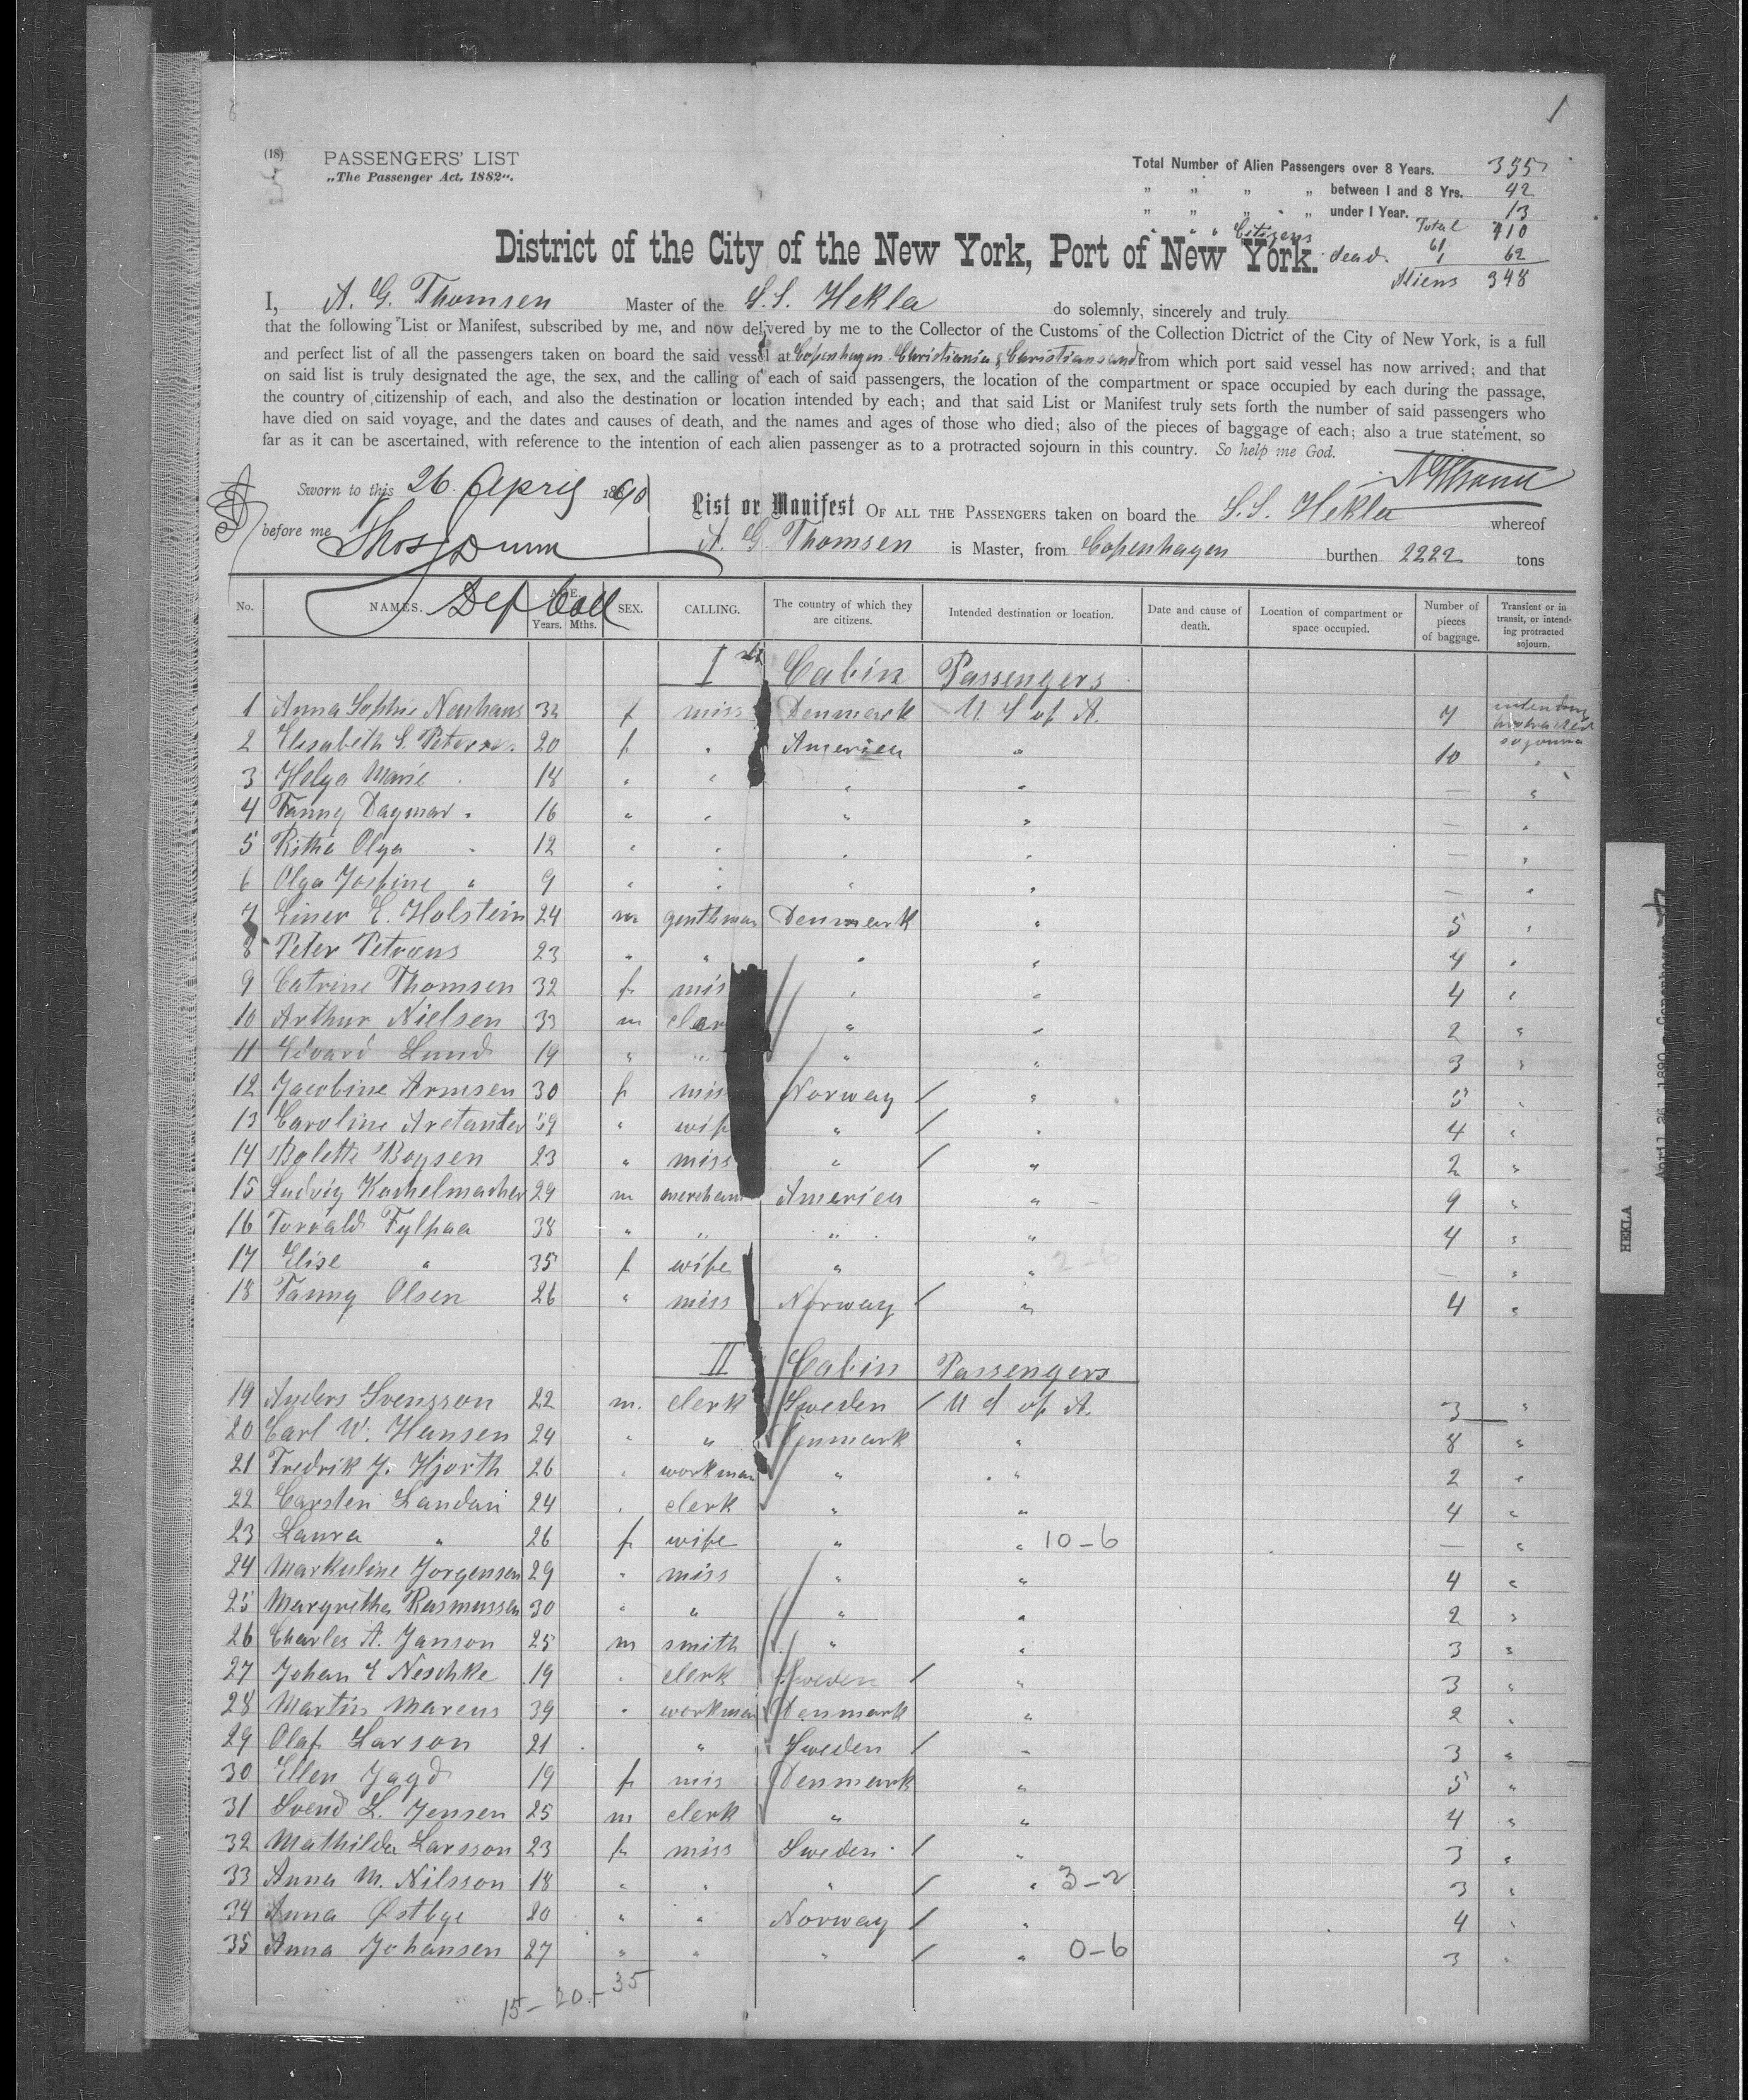 1
(18)
PASSENGERS' LIST
„The Passenger Act, 1882“.
Total Number of Alien Passengers over 8 Years. 355
„ „ „ „ between 1 and 8 Yrs. 42
„ „ „ „ under 1 Year. 13
Total 410
Citizens 61
dead 1 62
Aliens 348
District of the City of the New York, Port of New York.
I, A. G. Thomsen Master of the S.S. Hekla do solemnly, sincerely and truly
that the following List or Manifest, subscribed by me, and now delivered by me to the Collector of the Customs of the Collection District of the City of New York, is a full
and perfect list of all the passengers taken on board the said vessel at Copenhagen Christiania & Christiansand from which port said vessel has now arrived; and that
on said list is truly designated the age, the sex, and the calling of each of said passengers, the location of the compartment or space occupied by each during the passage,
the country of citizenship of each, and also the destination or location intended by each; and that said List or Manifest truly sets forth the number of said passengers who
have died on said voyage, and the dates and causes of death, and the names and ages of those who died; also of the pieces of baggage of each; also a true statement, so
far as it can be ascertained, with reference to the intention of each alien passenger as to a protracted sojourn in this country. So help me God.
Sworn to this 26 April 1890
before me Thos Dunn
Dep Coll
List or Manifest OF ALL THE PASSENGERS taken on board the S.S. Hekla whereof
A. G. Thomsen is Master, from Copenhagen burthen 2222 tons
No. NAMES. AGE. Years. Mths. SEX. CALLING. The country of which they are citizens. Intended destination or location. Date and cause of death. Location of compartment or space occupied. Number of pieces of baggage. Transient or in transit, or intending protracted sojourn.
Ist Cabin Passengers
1 Anna Sophie Neuhaus 32 f miss Denmark U S of A. 7 intending protracted sojourn
2 Elisabeth S. Petersen 20 f " America " 10 "
3 Helga Marie " 18 " " " " — "
4 Fanny Dagmar " 16 " " " " — "
5 Ritha Olga " 12 " " " " — "
6 Olga Josfine " 9 " " " " — "
7 Einer C. Holstein 24 m gentleman Denmark " 5 "
8 Peter Petræus 23 " " " " 4 "
9 Catrine Thomsen 32 f mis " " 4 "
10 Arthur Nielsen 33 m cler " " 2 "
11 Edvard Lund 19 " " " " 3 "
12 Jacobine Armsen 30 f mis Norway " 5 "
13 Caroline Aretander 59 " wif " " 4 "
14 Bolette Boysen 23 " miss " " 2 "
15 Ludvig Kachelmacher 29 m merchant America " 9 "
16 Torvald Fylpaa 38 " " " " 4 "
17 Elise " 35 f wife " " 2-6 — "
18 Fanny Olsen 26 " miss Norway " 4 "
II Cabin Passengers
19 Anders Svensson 22 m. clerk Sweden U S of A. 3 "
20 Carl W. Hansen 24 " " Denmark " 8 "
21 Fredrik J. Hjorth 26 " workman " " 2 "
22 Carsten Landari 24 " clerk " " 4 "
23 Laura " 26 f wife " " 10-6 — "
24 Markuline Jorgensen 29 " miss " " 4 "
25 Margretha Rasmussen 30 " " " " 2 "
26 Charles A. Janson 25 m smith " " 3 "
27 Johan E Neschke 19 " clerk Sweden " 3 "
28 Martin Marcus 39 " workman Denmark " 2 "
29 Olaf Larson 21 " Sweden " 3 "
30 Ellen Jagd 19 f mis Denmark " 5 "
31 Svend L. Jensen 25 m clerk " " 4 "
32 Mathilda Larsson 23 f miss Sweden " 3 "
33 Anna M. Nilsson 18 " " " " 3-2 3 "
34 Anna Østbye 20 " " Norway " 4 "
35 Anna Johansen 27 " " " " 0-6 3 "
15-20-35
HEKLA April 26, 1890 - Copenhagen